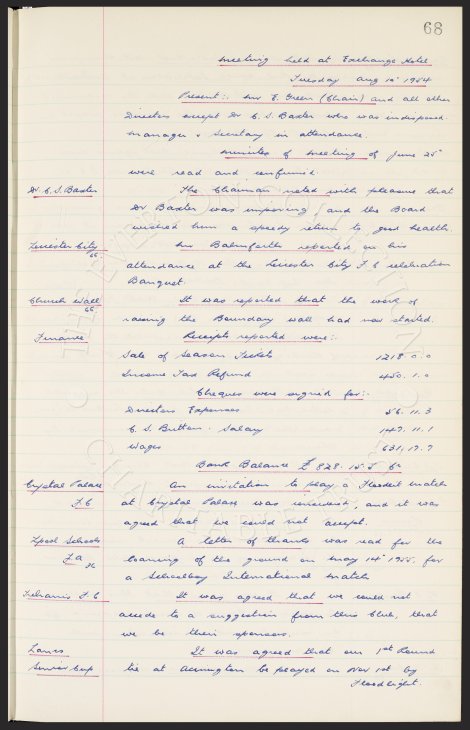 68
Meeting held at Exchange Hotel
Tuesday Aug 10th 1954
Present:- Mr E. Green (Chair) and all other
Directors except Dr C. S. Baxter who was indisposed
Manager & Secretary in attendance.
Minutes of meeting of June 25th
were read and confirmed.
Dr C. S. Baxter The Chairman noted with pleasure that
Dr Baxter was improving, and the Board
wished him a speedy return to good health.
Leicester City Mr Balmforth reported on his
66
attendance at the Leicester City F.C celebration
Banquet.
Church Wall It was reported that the work of
66
raising the Boundary wall had now started.
Finance Receipts reported were:-
Sale of Season Tickets 1218. 0. 0
Income Tax Refund 450. 1. 0
Cheques were signed for:-
Directors Expenses 56. 11. 3
C. S. Britton. Salary 147. 11. 1
Wages 631. 17. 7
Bank Balance £ 828. 15. 5
Crystal Palace An invitation to play a Floodlit match
F.C at Crystal Palace was received, and it was
agreed that we could not accept.
Lpool Schools A letter of thanks was read for the
F.A loaning of the ground on May 14th 1955, for
36
a Schoolboy International match
F.C It was agreed that we could not
accede to a suggestion from this Club, that
we be their sponsors.
Lancs It was agreed that our 1st Round
Senior Cup tie at Accrington be played on Nov 1st by
Floodlight.